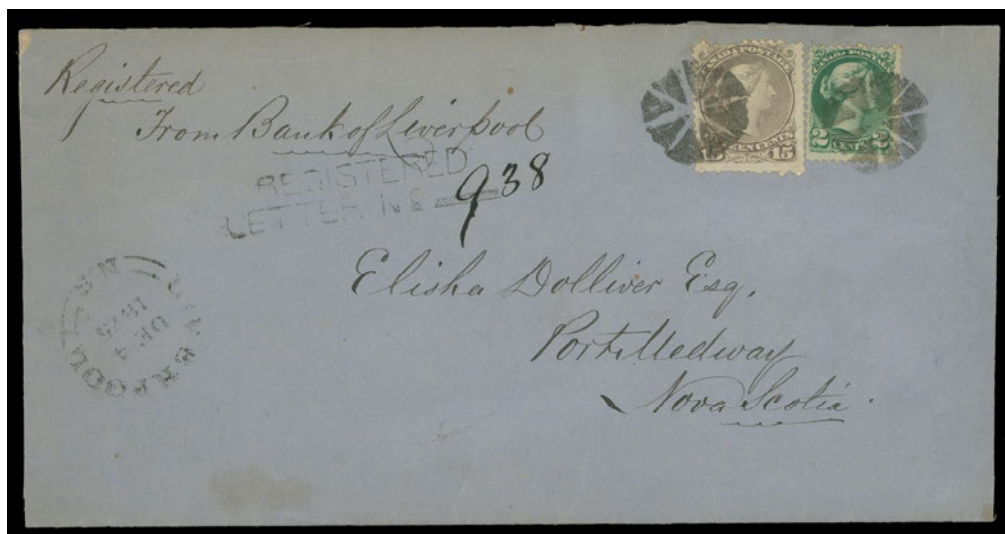 Registered
From Bank of Liverpool
REGISTERED
LETTER No 938
CANADA POSTAGE
15 CENTS 15
CANADA POSTAGE
2 CENTS 2
LIVERPOOL N.S.
DE 4
1875
Elisha Dolliver Esq.
Port Medway
Nova Scotia.